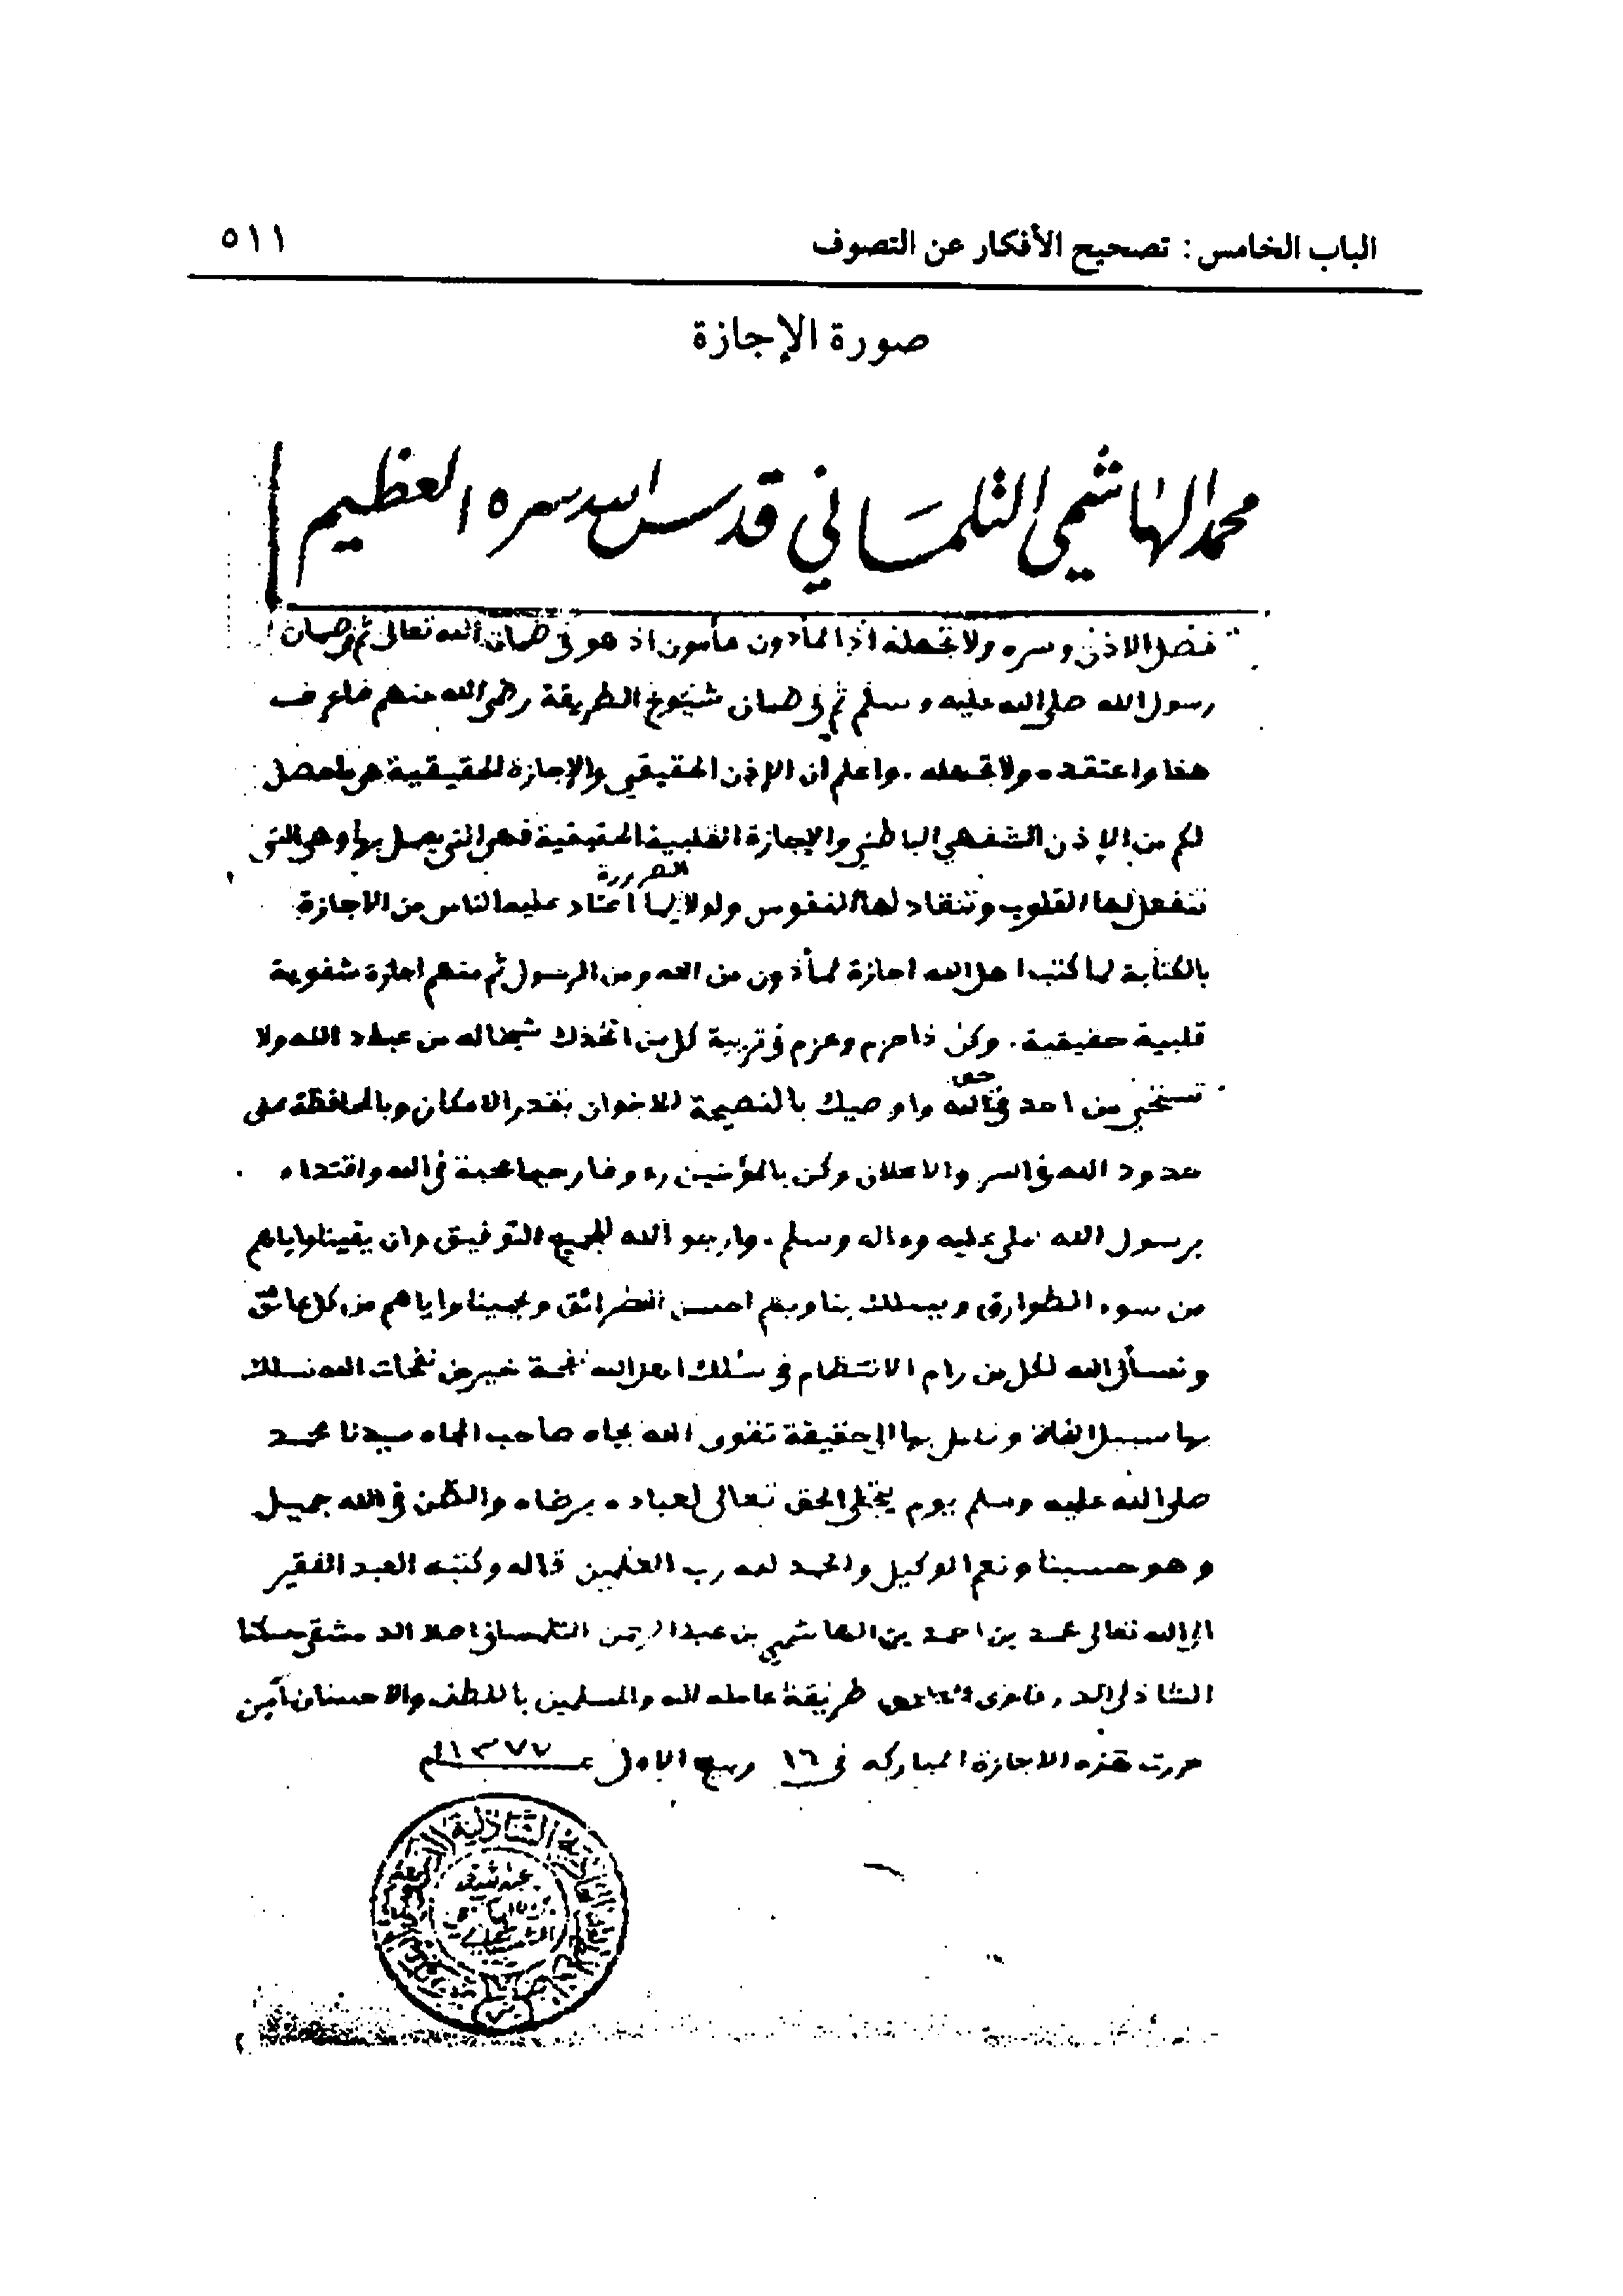 الباب الخامس : تصحيح الأفكار عن التصوف ٥١١
صورة الإجازة
محمد الهاشمي التلمساني قدس الله سره العظيم
فضل الاذن وسره ولا تجهله اذ المأذون مأمون اذ هو في ضمان الله تعالى ثم في ضمان
رسول الله صلى الله عليه وسلم ثم في ضمان شيوخ الطريقة رضي الله عنهم فاعرف
هذا واعتقده ولا تجهله . واعلم أن الإذن الحقيقي والإجازة الحقيقية هو ما حصل
لكم من الإذن الشفهي الباطني والإجازة القلبية الحقيقية فهي التي يعمل بها وهي التي
الضرورة
تنفعل لها القلوب وتنقاد لها النفوس ولولا لما اعتاد عليها الناس من الاجازة
بالكتابة لما كتب اهل الله اجازة لمأذون من الله ومن الرسول ثم منهم اجازة شفوية
قلبية حقيقية . وكن ذا حزم وعزم في تربية كل من اتخذك شيخا له من عباد الله ولا
حق
تستحي من احد في الله واوصيك بالنصيحة للاخوان بقدر الامكان وبالمحافظة على
حدود الله في السر والاعلان وكن بالمؤمنين رءوفا رحيما محبة في الله واقتداء
برسول الله صلى عليه وءاله وسلم . وارجو الله للجميع التوفيق وان يقينا واياهم
من سوء الطوارق ويسلك بنا وبهم احسن الطرائق ويحمينا واياهم من كل عائق
ونسأل الله لكل من رام الانتظام في سلك اهل الله نفحة خير من نفحات الله نسلك
بها سبيل النجاة ونصل بها الى حقيقة تقوى الله بجاه صاحب الجاه سيدنا محمد
صلى الله عليه وسلم يوم يتجلى الحق تعالى لعباده برضاه والظن في الله جميل
وهو حسبنا ونعم الوكيل والحمد لله رب العلمين قاله وكتبه العبد الفقير
الى الله تعالى محمد بن احمد بن الهاشمي بن عبد الرحمن التلمساني اصلا الدمشقي سكنا
الشاذلي الدرقاوي طريقة عامله الله والمسلمين باللطف والاحسان آمين
حررت هذه الاجازة المباركه في ١٦ ربيع الاول ١٣٧٧
الشاذلية